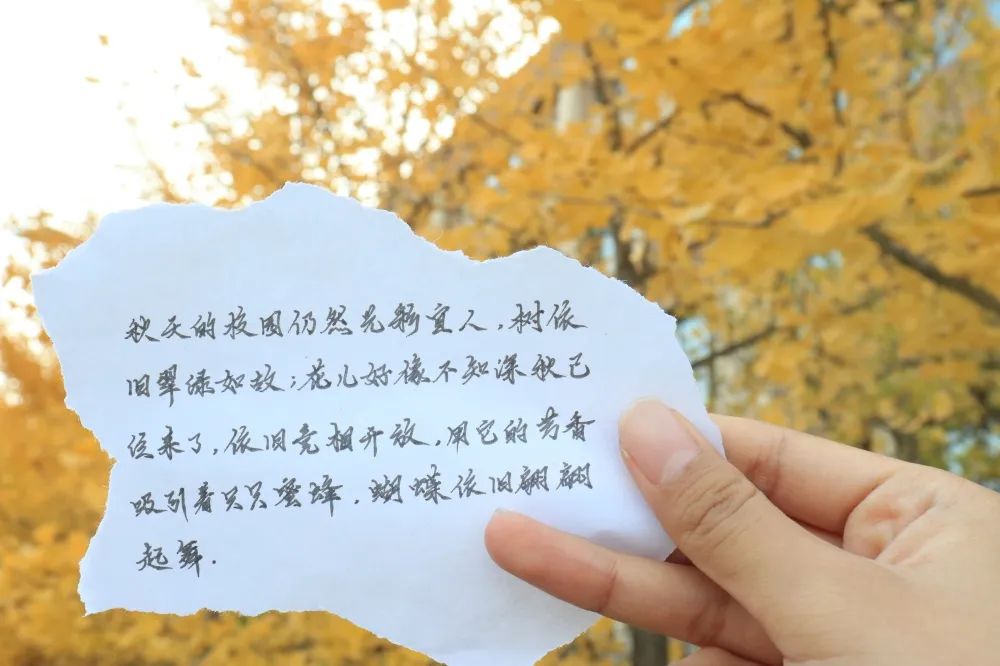 秋天的校园仍然光彩宜人,树依
旧翠绿如故;花儿好像不知深秋已
经来了,依旧竞相开放,用它的芳香
吸引着只只蜜蜂.蝴蝶依旧翩翩
起舞.